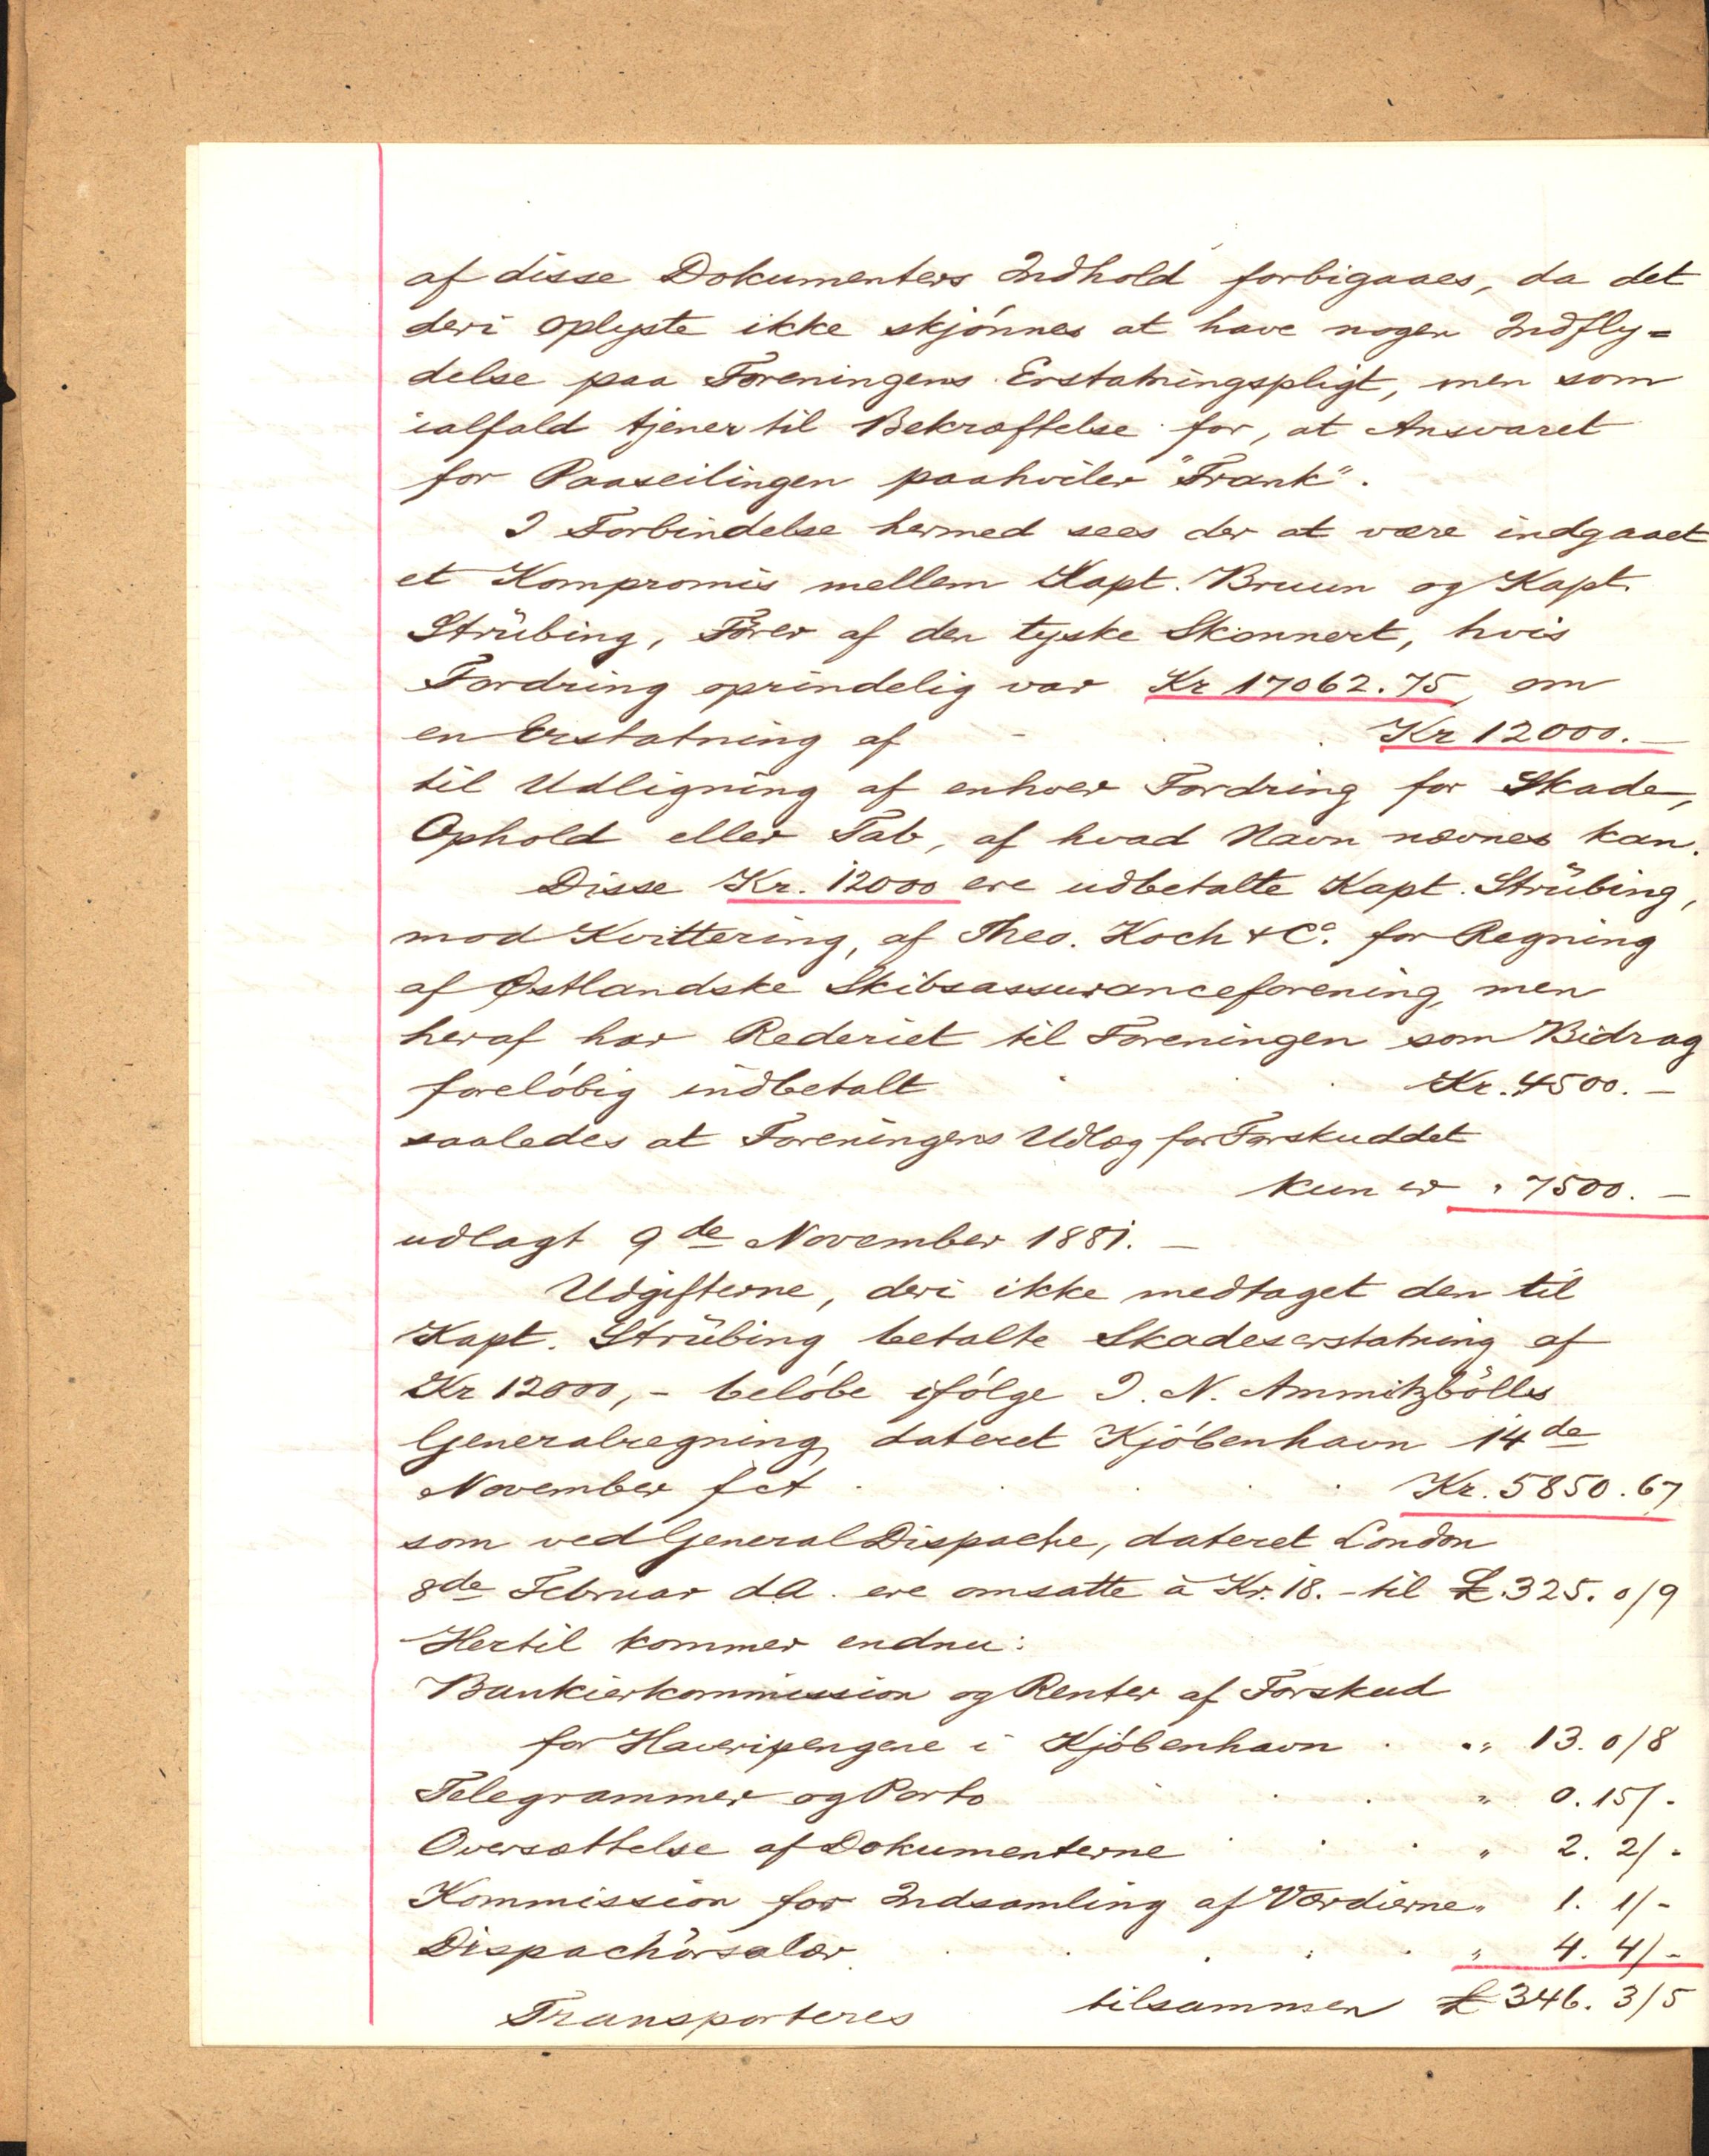 af disse Dokumenters Indhold forbigaaes, da det
deri oplyste ikke skjönnes at have nogen Indfly=
delse paa Foreningens Erstatningspligt, men som
ialfald tjener til Bekræftelse for, at Ansvaret
for Paaseilingen paahviler "Frank".
I Forbindelse hermed sees der at være indgaaet
et Kompromis mellem Kapt. Bruun og Kapt.
Strübing, Förer af den tyske Skonnert, hvis
Fordring oprindelig var Kr 17062.75, om
en Erstatning af - Kr 12000.—
til Udligning af enhver Fordring for Skade,
Ophold eller Tab, af hvad Navn nævnes kan.
Disse Kr. 12000 ere udbetalte Kapt. Strübing,
mod Kvittering, af Theo. Koch & Co. for Regning
af Østlandske Skibsassuranceforening, men
heraf har Rederiet til Foreningen som Bidrag
foreløbig indbetalt Kr. 4500.—
saaledes at Foreningens Udlæg for Forskuddet
kun er " 7500.—
udlagt 9de November 1881.—
Udgifterne, deri ikke medtaget den til
Kapt. Strübing betalte Skadeserstatning af
Kr 12000,- beløbe ifølge I. N. Ammitzbölls
Generalregning, dateret Kjöbenhavn 14de
November f et Kr. 5850.67
som ved General Dispache, dateret London
8de Februar d.A. ere omsatte à Kr. 18.- til £.325. 0/9
Hertil kommer endnu:
Bankierkommission og Renter af Forskud
for Haveripengene i Kjöbenhavn . „ 13. 0/8
Telegrammer og Porto . . „ 0. 15/-
Oversættelse af Dokumenterne . . . „ 2. 2/-
Kommission for Indsamling af Værdierne „ 1. 1/-
Dispachörsalær . . . . . „ 4. 4/-
Transporteres tilsammen £ 346. 3/5